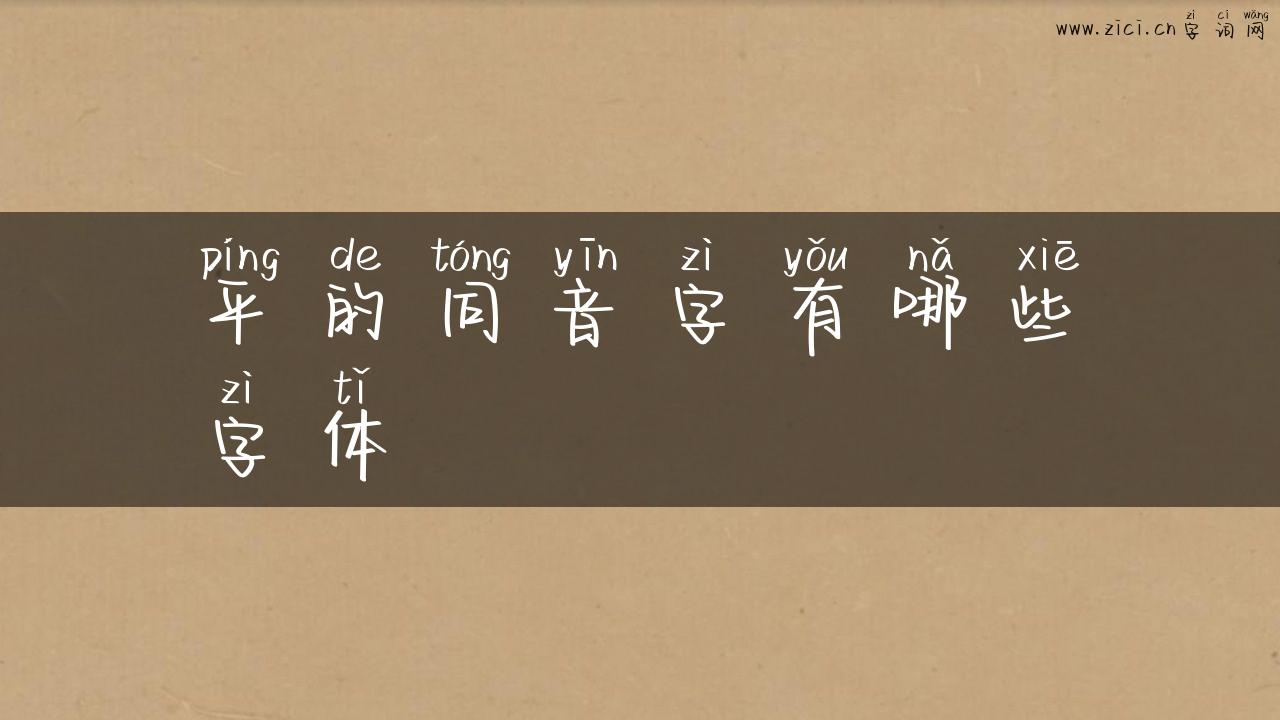 zì cí wǎng
www.zici.cn 字词网
píng de tóng yīn zì yǒu nǎ xiē
平的同音字有哪些
zì tǐ
字体